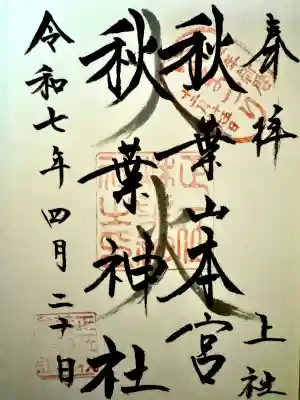 奉拝
上社
秋葉山本宮
秋葉神社
令和七年四月二十日